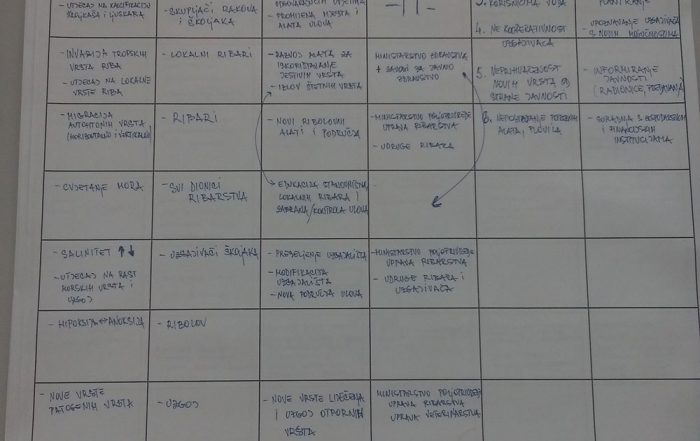 - UTJECAJ NA KALCIFIKACIJU
KRAJKAŠA I LJUSKARA
- SKUPLJAČI RAKOVA
I ŠKOLJAKA
- PROMJENA MJESTA I
ALATA ULOVA
-11-
4. NE KOOPERATIVNOST
UZGAJIVAČA
UPOZNAVANJE UZGAJIVAČA
S NOVIM MOGUĆNOSTIMA
- INVAZIJA TROPSKIH
VRSTA RIBA
- UTJECAJ NA LOKALNE
VRSTE RIBA
- LOKALNI RIBARI
- RAZVOJ ALATA ZA
ISKORIŠTAVANJE
JESTIVIH VRSTA
- IZLOV ŠTETNIH VRSTA
MINISTARSTVO ZDRAVSTVA
+ ZAVODI ZA JAVNO
ZDRAVSTVO
5. NEPRIHVAĆENOST
NOVIH VRSTA OD
STRANE JAVNOSTI
- INFORMIRANJE
JAVNOSTI
(RADIONICE, PREDAVANJA)
- MIGRACIJA
AUTOHTONIH VRSTA
(HORIZONTALNO I VERTIKALNO)
- RIBARI
- NOVI RIBOLOVNI
ALATI I PODRUČJA
- MINISTARSTVO POLJOPRIVREDE
UPRAVA RIBARSTVA
- UDRUGE RIBARA
6. NEPOSJEDOVANJE POTREBNIH
ALATA, PLOVILA
- SURADNJA S GOSPODARSKIM
I FINANCIJSKIM
INSTITUCIJAMA
- CVJETANJE MORA
- SVI DIONICI
RIBARSTVA
- EDUKACIJA STANOVNIŠTVA,
LOKALNIH RIBARA I
ZABRANA/KONTROLA ULOVA
- SALINITET ↑↓
- UTJECAJ NA RAST
MORSKIH VRSTA I
UZGOJ
- UZGAJIVAČI ŠKOLJAKA
- PRESELJENJE UZGAJALIŠTA
- MODIFIKACIJA
UZGAJALIŠTA
- NOVA PODRUČJA ULOVA
- MINISTARSTVO POLJOPRIVREDE
UPRAVA RIBARSTVA
- UDRUGE RIBARA I
UZGAJIVAČA
- HIPOKSIJA ↔ ANOKSIJA
- RIBOLOV
- NOVE VRSTE
PATOGENIH VRSTA
- UZGOJ
- NOVE VRSTE LIJEČENJA
I UZGOJ OTPORNIH
VRSTA
MINISTARSTVO POLJOPRIVREDE
UPRAVA RIBARSTVA
UPRAVA VETERINARSTVA